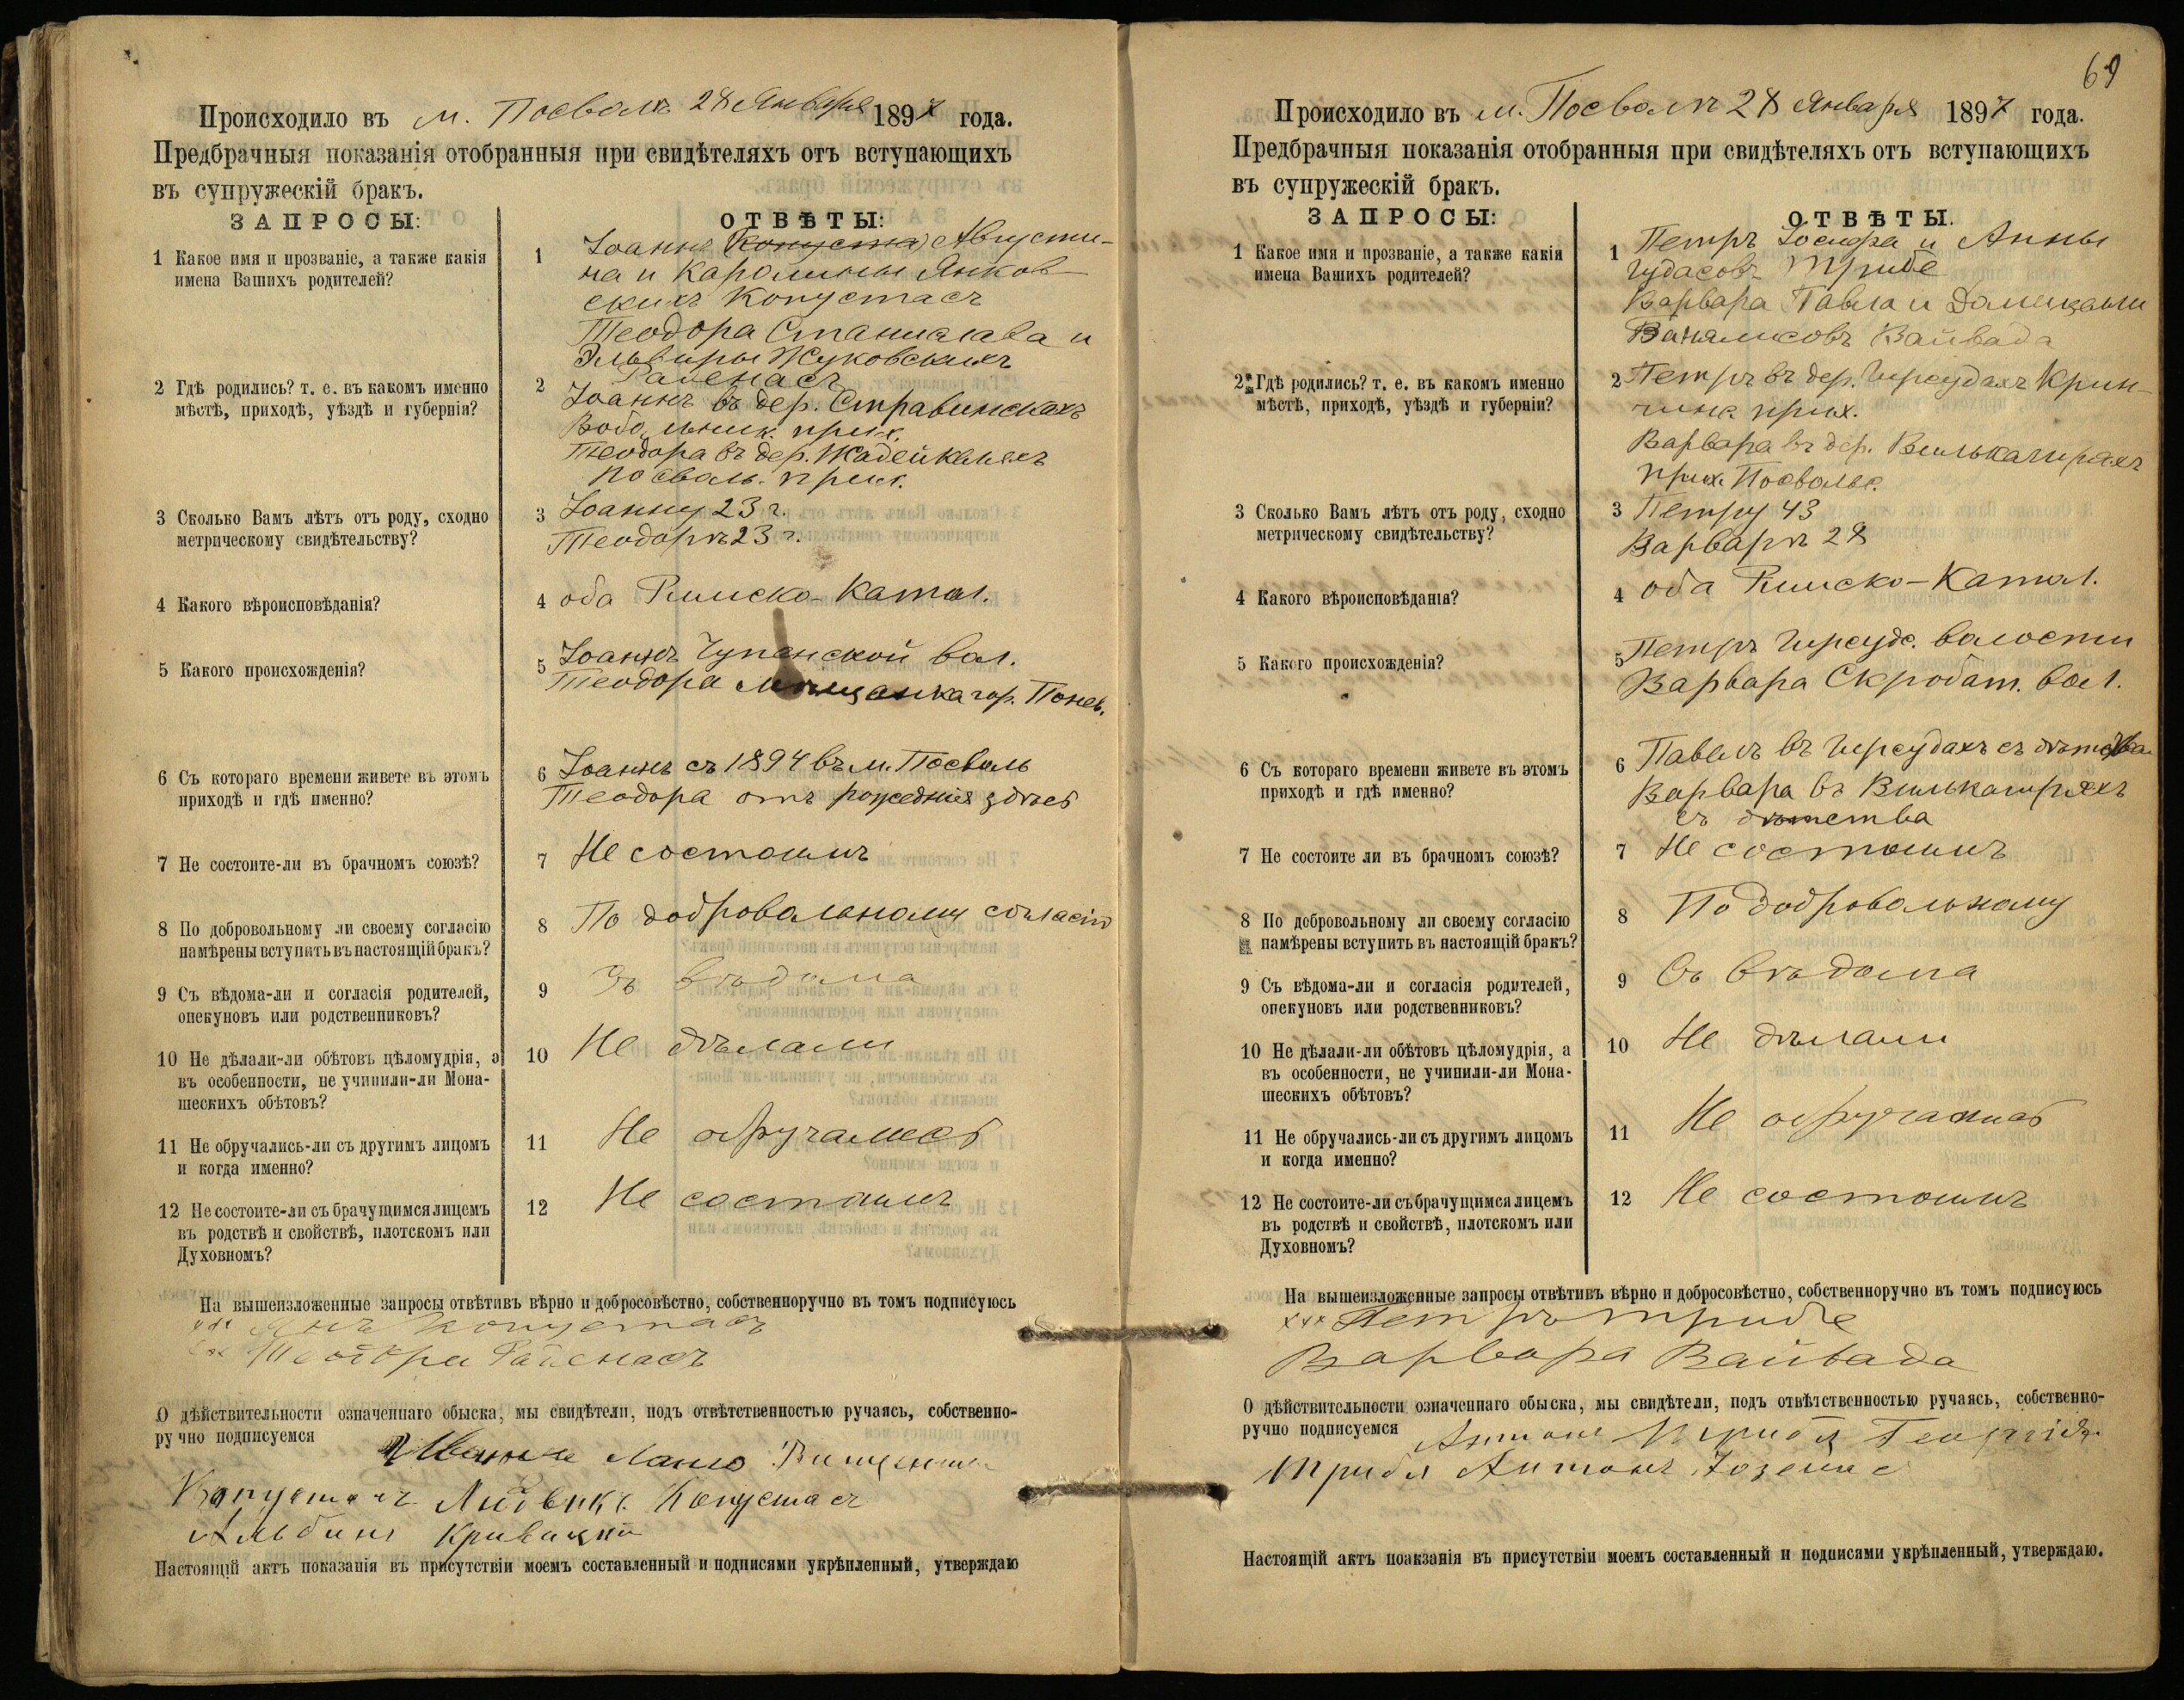 Происходило въ м. Посволѣ 28 Января 1897 года.
Предбрачныя показанія отобранныя при свидѣтеляхъ отъ вступающихъ
въ супружескій бракъ.
ЗАПРОСЫ:
1 Какое имя и прозваніе, а также какія
имена Вашихъ родителей?
2 Гдѣ родились? т. е. въ какомъ именно
мѣстѣ, приходѣ, уѣздѣ и губерніи?
3 Сколько Вамъ лѣтъ отъ роду, сходно
метрическому свидѣтельству?
4 Какого вѣроисповѣданія?
5 Какого происхожденія?
6 Съ котораго времени живете въ этомъ
приходѣ и гдѣ именно?
7 Не состоите-ли въ брачномъ союзѣ?
8 По добровольному ли своему согласію
намѣрены вступить въ настоящій бракъ?
9 Съ вѣдома-ли и согласія родителей,
опекуновъ или родственниковъ?
10 Не дѣлали-ли обѣтовъ цѣломудрія, а
въ особенности, не учинили-ли Мона-
шескихъ обѣтовъ?
11 Не обручались-ли съ другимъ лицомъ
и когда именно?
12 Не состоите-ли съ брачущимся лицемъ
въ родствѣ и свойствѣ, плотскомъ или
Духовномъ?
ОТВѢТЫ:
1 Іоаннъ Копустас Августи-
на и Каролины Янков-
скихъ Копустасъ
Теодора Станислава и
Эльвиры Жуковскихъ
2 Іоаннъ въ дер. Стравинскахъ
прих.
Теодора въ дер. Жадейканяхъ
Посволь. прих.
3 Іоанну 23 г.
Теодорѣ 23 г.
4 оба Римско-Катол.
5 Іоаннъ вол.
Теодора мѣщанка гор. Понев.
6 Іоаннъ съ 1894 въ м. Посволь
Теодора отъ рожденія здѣсь
7 Не состоимъ
8 По добровольному согласію
9 Съ вѣдома
10 Не дѣлали
11 Не обручались
12 Не состоимъ
На вышеизложенные запросы отвѣтивъ вѣрно и добросовѣстно, собственноручно въ томъ подписуюсь
xxx Янъ Копустасъ
xxx Теодора
О дѣйствительности означеннаго обыска, мы свидѣтели, подъ отвѣтственностью ручаясь, собственно-
ручно подписуемся
Копустасъ Людвикъ Копустасъ
Альбинъ
Настоящій актъ показанія въ присутствіи моемъ составленный и подписями укрѣпленный, утверждаю
69
Происходило въ м. Посволѣ 28 Января 1897 года.
Предбрачныя показанія отобранныя при свидѣтеляхъ отъ вступающихъ
въ супружескій бракъ.
ЗАПРОСЫ:
1 Какое имя и прозваніе, а также какія
имена Вашихъ родителей?
2 Гдѣ родились? т. е. въ какомъ именно
мѣстѣ, приходѣ, уѣздѣ и губерніи?
3 Сколько Вамъ лѣтъ отъ роду, сходно
метрическому свидѣтельству?
4 Какого вѣроисповѣданія?
5 Какого происхожденія?
6 Съ котораго времени живете въ этомъ
приходѣ и гдѣ именно?
7 Не состоите ли въ брачномъ союзѣ?
8 По добровольному ли своему согласію
намѣрены вступить въ настоящій бракъ?
9 Съ вѣдома-ли и согласія родителей,
опекуновъ или родственниковъ?
10 Не дѣлали-ли обѣтовъ цѣломудрія, а
въ особенности, не учинили-ли Мона-
шескихъ обѣтовъ?
11 Не обручались-ли съ другимъ лицомъ
и когда именно?
12 Не состоите-ли съ брачущимся лицемъ
въ родствѣ и свойствѣ, плотскомъ или
Духовномъ?
ОТВѢТЫ.
1 Петръ Іосифа и Анны
Трибе
Варвара Павла и
Вайвада
2 Петръ въ дер. Гирсудахъ Крин-
чинк. прих.
Варвара въ дер.
прих. Посвольс.
3 Петру 43
Варварѣ 28
4 оба Римско-Катол.
5 Петръ Гирсудс. волости
Варвара Скробот. вол.
6 Павелъ въ Гирсудахъ съ дѣтства
Варвара въ
съ дѣтства
7 Не состоимъ
8 По добровольному
9 Съ вѣдома
10 Не дѣлали
11 Не обручались
12 Не состоимъ
На вышеизложенные запросы отвѣтивъ вѣрно и добросовѣстно, собственноручно въ томъ подписуюсь
xxx Петръ трибе
Варвара Вайвада
О дѣйствительности означеннаго обыска, мы свидѣтели, подъ отвѣтственностью ручаясь, собственно-
ручно подписуемся Антонъ
Антонъ
Настоящій актъ поакзанія въ присутствіи моемъ составленный и подписями укрѣпленный, утверждаю.